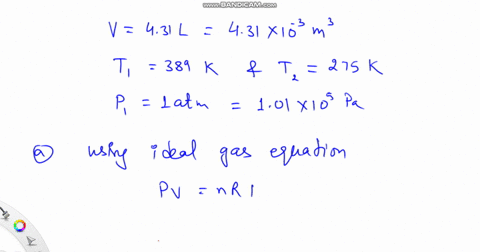 WWW.BANDICAM.COM
V = 4.31 L = 4.31 × 10⁻³ m³
T₁ = 389 K & T₂ = 275 K
P₁ = 1 atm = 1.01 × 10⁵ Pa
ⓐ using ideal gas equation
PV = nR